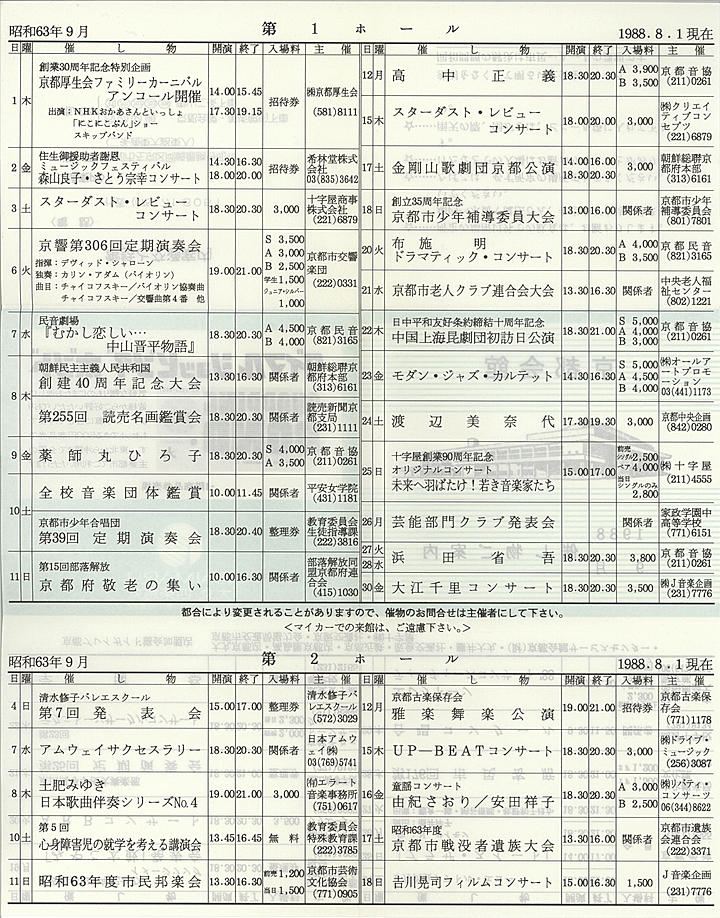 昭和63年9月
第1ホール
1988.8.1現在
日 曜 催し物 開演 終了 入場料 主催
1 木
創業30周年記念特別企画
京都厚生会ファミリーカーニバル
アンコール開催
出演:NHKおかあさんといっしょ
「にこにこぷん」ショー
スキップバンド
14.00 15.45
17.30 19.15
招待券
㈱京都厚生会
(581)8111
2 金
住生御援助者謝恩
ミュージックフェスティバル
森山良子・さとう宗幸コンサート
14.30 16.30
18.00 20.00
招待券
希林堂株式会社
03(835)3642
3 土
スターダスト・レビュー
コンサート
18.30 20.30
3,000
十字屋商事株式会社
(221)6879
6 火
京響第306回定期演奏会
指揮:デヴィッド・シャローン
独奏:カリン・アダム(バイオリン)
曲目:チャイコフスキー/バイオリン協奏曲
チャイコフスキー/交響曲第4番 他
19.00 21.00
S 3,500
A 3,000
B 2,500
学生 1,500
ジュニア・シルバー
1,000
京都市交響楽団
(222)0331
7 水
民音劇場
『むかし恋しい…
中山晋平物語』
18.30 20.30
A 4,500
B 4,000
京都民音
(821)3165
8 木
朝鮮民主主義人民共和国
創建40周年記念大会
13.30 16.30
関係者
朝鮮総聯京都府本部
(313)6161
第255回 読売名画鑑賞会
18.30 20.30
関係者
読売新聞京都支局
(231)1111
9 金
薬師丸ひろ子
18.30 20.30
S 4,000
A 3,500
京都音協
(211)0261
10 土
全校音楽団体鑑賞
10.00 11.45
関係者
平安女学院
(431)1181
京都市少年合唱団
第39回 定期演奏会
18.30 20.40
整理券
教育委員会生徒指導課
(222)3816
11 日
第15回部落解放
京都府敬老の集い
10.00 16.30
関係者
部落解放同盟京都府連合会
(415)1030
日 曜 催し物 開演 終了 入場料 主催
12 月
高中正義
18.30 20.30
A 3,900
B 3,500
京都音協
(211)0261
15 木
スターダスト・レビュー
コンサート
18.00 20.00
3,000
㈱クリエイティブコンセプツ
(221)6879
17 土
金剛山歌劇団京都公演
14.00 16.00
18.30 20.30
3,000
朝鮮総聯京都府本部
(313)6161
18 日
創立35周年記念
京都市少年補導委員大会
13.00 16.00
関係者
京都市少年補導委員会
(801)7801
20 火
布施明
ドラマティック・コンサート
18.30 20.30
A 4,000
B 3,500
京都民音
(821)3165
21 水
京都市老人クラブ連合会大会
13.30 16.30
関係者
中央老人福祉センター
(802)1221
22 木
日中平和友好条約締結十周年記念
中国上海昆劇団初訪日公演
18.30 21.00
S 5,000
A 4,000
B 3,000
京都音協
(211)0261
23 金
モダン・ジャズ・カルテット
14.30 16.30
S 5,000
A 4,500
B 4,000
㈱オールアートプロモーション
03(441)1173
24 土
渡辺美奈代
17.30 19.30
3,000
京都中央企画
(842)0280
25 日
十字屋創業90周年記念
オリジナルコンサート
未来へ羽ばたけ!若き音楽家たち
15.00 17.00
前売
シングル 2,500
ペア 4,000
当日
シングルのみ
2,800
㈱十字屋
(211)4555
26 月
芸能部門クラブ発表会
関係者
家政学園中高等学校
(771)6151
27 火
28 水
浜田省吾
18.30 20.30
3,800
京都音協
(211)0261
30 金
大江千里コンサート
18.30 20.30
3,500
㈱J音楽企画
(231)7776
都合により変更されることがありますので、催物のお問合せは主催者にして下さい。
<マイカーでの来館は、ご遠慮下さい。>
昭和63年9月
第2ホール
1988.8.1現在
日 曜 催し物 開演 終了 入場料 主催
4 日
清水修子バレエスクール
第7回発表会
15.00 17.00
整理券
清水修子バレエスクール
(572)3029
7 水
アムウェイサクセスラリー
18.30 20.30
関係者
日本アムウェイ㈱
03(769)5741
8 木
土肥みゆき
日本歌曲伴奏シリーズNo.4
19.00 21.00
3,000
㈲エラート音楽事務所
(751)0617
10 土
第5回
心身障害児の就学を考える講演会
13.45 16.45
無料
教育委員会特殊教育課
(222)3785
11 日
昭和63年度市民邦楽会
13.30 16.30
前売 1,200
当日 1,500
京都市芸術文化協会
(771)0905
日 曜 催し物 開演 終了 入場料 主催
12 月
京都古楽保存会
雅楽舞楽公演
19.00 21.00
招待券
京都古楽保存会
(771)1178
15 木
UP―BEATコンサート
18.30 20.30
3,000
㈱ドライブ・ミュージック
(256)3087
16 金
童謡コンサート
由紀さおり/安田祥子
18.30 20.30
A 3,000
B 2,500
㈱リバティ・コンサーツ
06(344)8622
17 土
昭和63年度
京都市戦没者遺族大会
13.30 16.30
関係者
京都市遺族会連合会
(222)3371
18 日
吉川晃司フィルムコンサート
15.00 16.30
1,500
J音楽企画
(231)7776